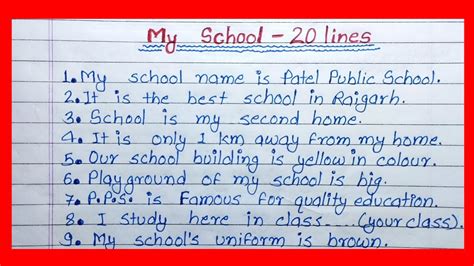 My School - 20 lines
1. My school name is Patel Public School.
2. It is the best school in Raigarh.
3. School is my second home.
4. It is only 1 km away from my home.
5. Our school building is yellow in colour.
6. Playground of my school is big.
7. P.P.S. is Famous for quality education.
8. I study here in class.....(your class).
9. My school's uniform is brown.